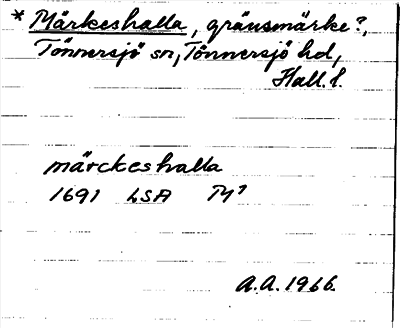 * Märkeshalla, gränsmärke?,
Tönnersjö sn, Tönnersjö hd,
Hall. l.
märckeshalla
1691 LSA
A.A. 1966.